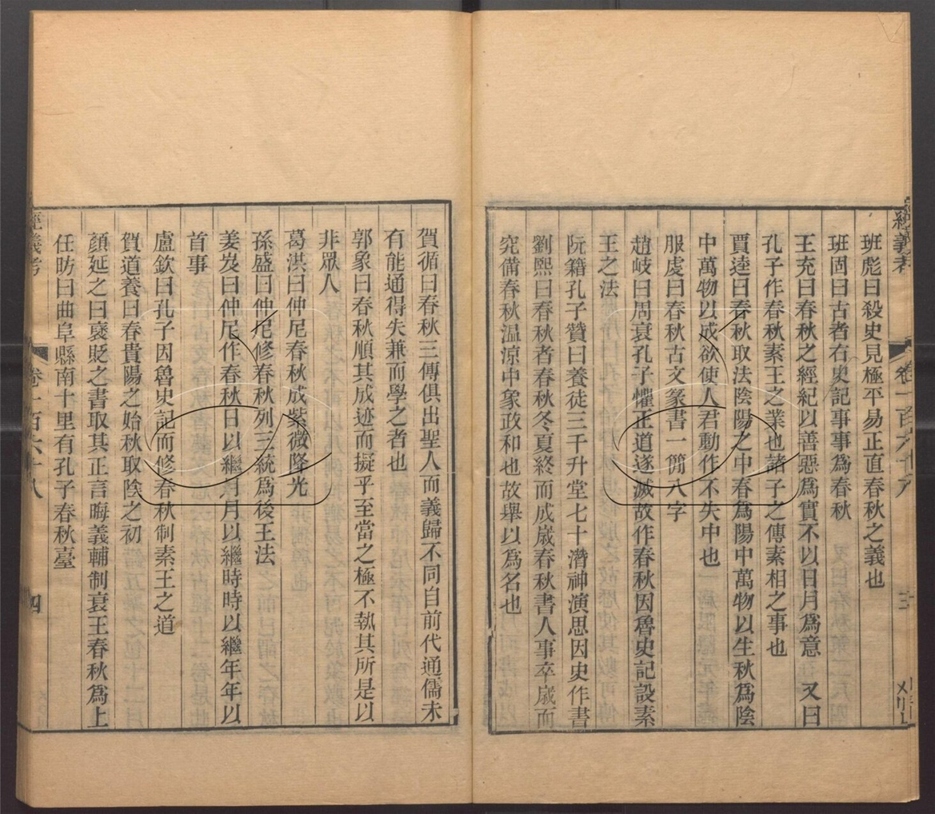 經義考
卷一百六十八
三
班彪曰殺史見極平易正直春秋之義也
班固曰古者右史記事事為春秋
王充曰春秋之經紀以善惡為實不以日月為意 又曰
孔子作春秋素王之業也諸子之傳素相之事也
賈逵曰春秋取法陰陽之中春為陽中萬物以生秋為陰
中萬物以成欲使人君動作不失中也
服虔曰春秋古文篆書一簡八字
趙岐曰周衰孔子懼正道遂滅故作春秋因魯史記設素
王之法
阮籍孔子贊曰養徒三千升堂七十潛神演思因史作書
劉熙曰春秋者春秋冬夏終而成歲春秋書人事卒歲而
究備春秋溫涼中象政和也故舉以為名也
賀循曰春秋三傳俱出聖人而義歸不同自前代通儒未
有能通得失兼而學之者也
郭象曰春秋順其成迹而擬乎至當之極不執其所是以
非眾人
葛洪曰仲尼春秋成紫微降光
孫盛曰仲尼修春秋列三統為後王法
姜岌曰仲尼作春秋日以繼月月以繼時時以繼年年以
首事
盧欽曰孔子因魯史記而修春秋制素王之道
賀道養曰春貴陽之始秋取陰之初
顏延之曰褒貶之書取其正言晦義輔制衰王春秋為上
任昉曰曲阜縣南十里有孔子春秋臺
經義考
卷一百六十八
四